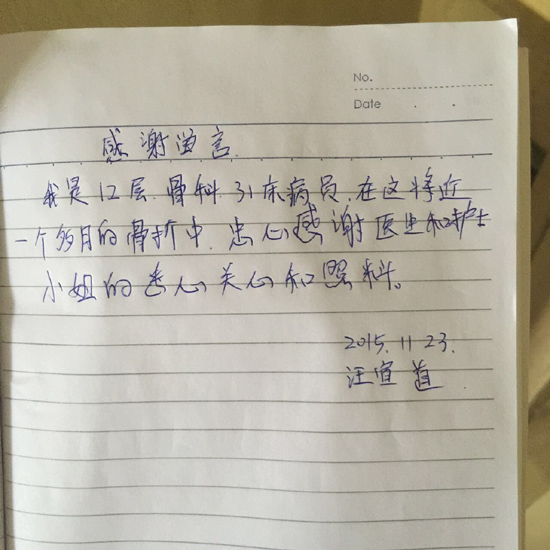 No.
Date . .
感谢留言
我是12层骨科31床病员,在这将近
一个多月的骨折中,忠心感谢医生和护士
小姐的悉心关心和照料。
2015.11.23.
汪宜道